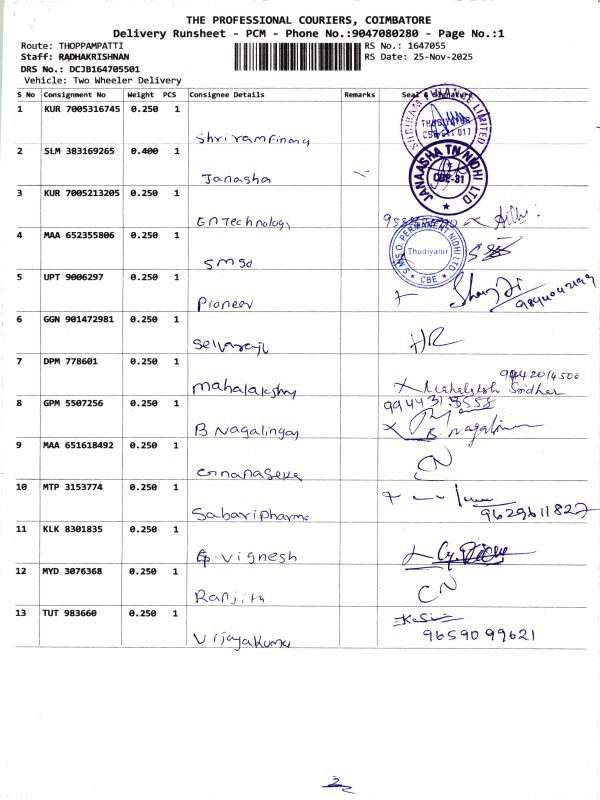 THE PROFESSIONAL COURIERS, COIMBATORE
Delivery Runsheet - PCM - Phone No.:9047080280 - Page No.:1
Route: THOPPAMPATTI
RS No.: 1647055
Staff: RADHAKRISHNAN
RS Date: 25-Nov-2025
DRS No.: DCJB164705501
Vehicle: Two Wheeler Delivery
S No Consignment No Weight PCS Consignee Details Remarks Seal & Signature
1 KUR 7005316745 0.250 1
Shriramfinanc
SHRIRAM FINANCE LIMITED
THUDIYALUR
2 SLM 383169265 0.400 1
Janasha
JANAASHA TN NIDHI LTD
CBE-31
3 KUR 7005213205 0.250 1
GnTechnology
4 MAA 652355806 0.250 1
smsd
S.M.S.O. PERMANENT NIDHI LTD
Thudiyalur
CBE
5 UPT 9006297 0.250 1
Pioneer
6 GGN 901472981 0.250 1
Selvaraj
HR
7 DPM 778601 0.250 1
mahalakshmy
8 GPM 5507256 0.250 1
B Nagalingam
B. Nagalin
9 MAA 651618492 0.250 1
CN
10 MTP 3153774 0.250 1
Sabaripharma
9629611827
11 KLK 8301835 0.250 1
G.Vignesh
12 MYD 3076368 0.250 1
Ranjith
CN
13 TUT 983660 0.250 1
Vijayakumar
9659099621